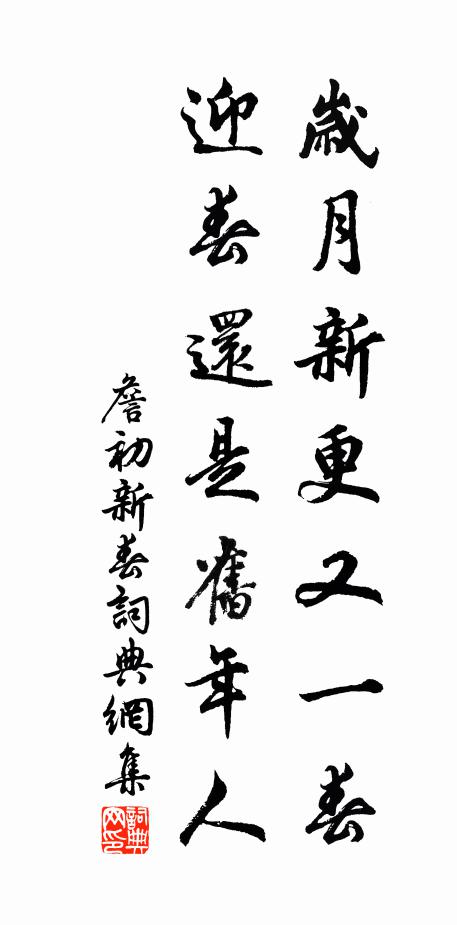 歲月新更又一春
迎春還是舊年人
詹初新春詞典網集
詞典網印